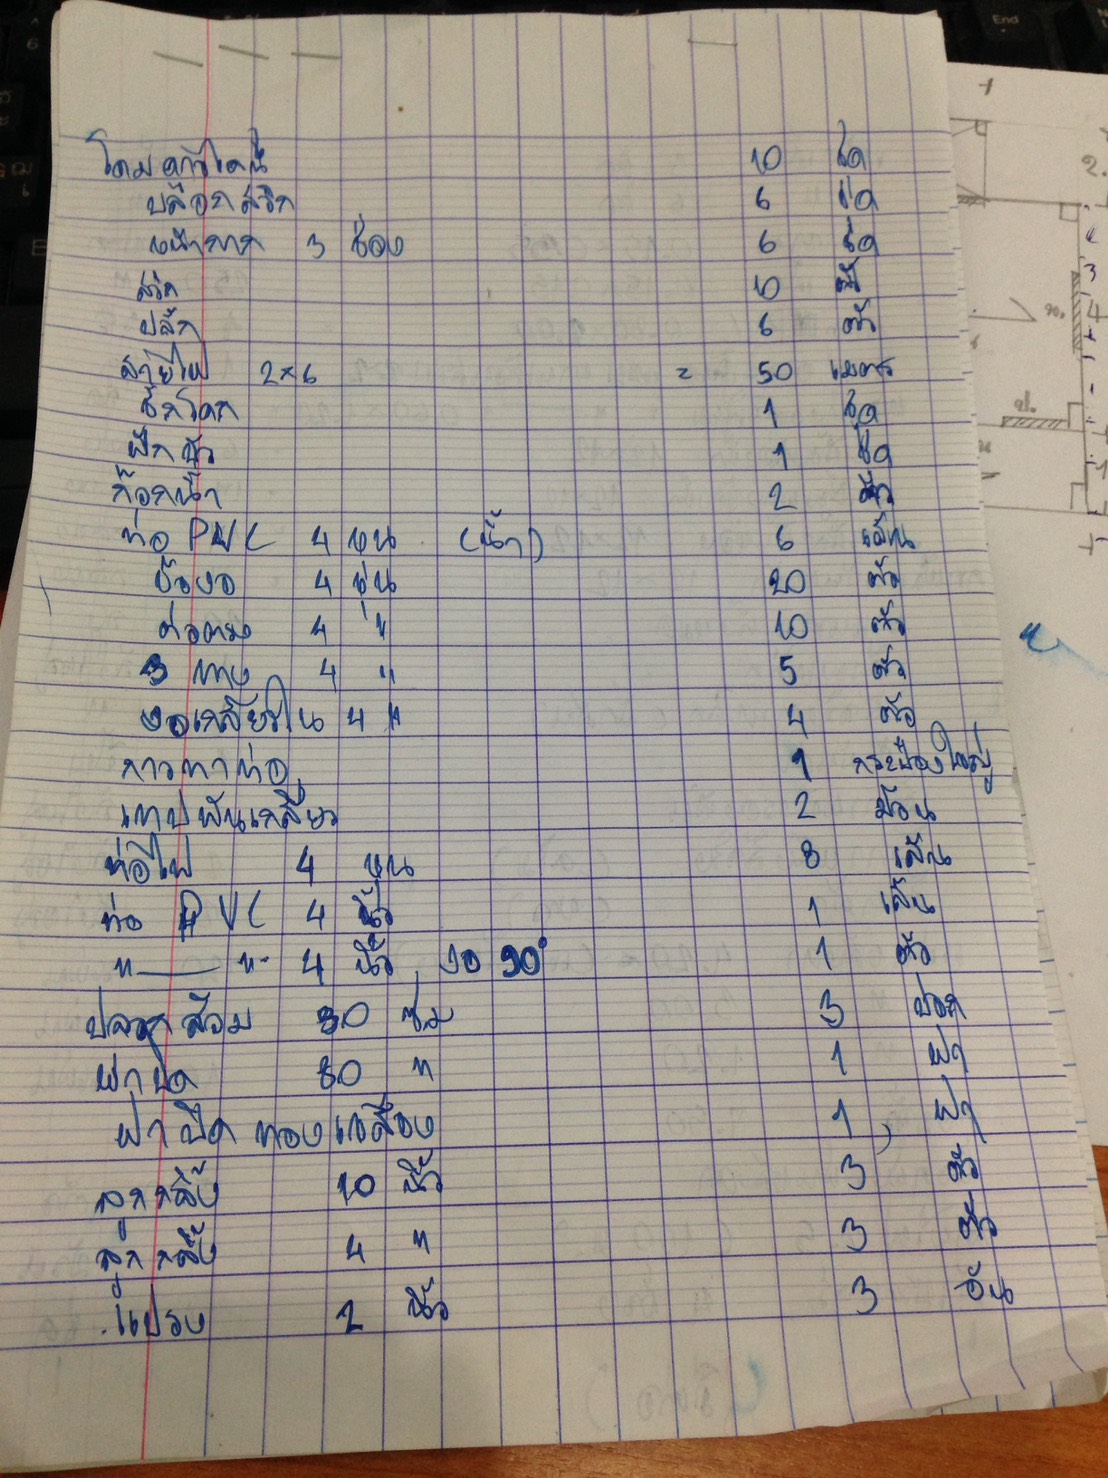 โคมดาวไลน์ 10 ชุด
บล๊อกสวิท 6 ชุด
หน้ากาก 3 ช่อง 6 ชุด
สวิท 10
ปลั๊ก 6 ตัว
สายไฟ 2×6 = 50 เมตร
ชักโคก 1 ชุด
ฝักบัว 1 ชุด
ก๊อกน้ำ 2 ตัว
ท่อ PVC 4 หุน (น้ำ) 6 เส้น
ข้องอ 4 หุน 20 ตัว
ต่อตรง 4 " 10 ตัว
3 ทาง 4 " 5 ตัว
งอเกลียวใน 4 " 4 ตัว
กาวทาท่อ 1 กระป๋องใหญ่
เทปพันเกลียว 2 ม้วน
ท่อไฟ 4 หุน 8 เส้น
ท่อ PVC 4 นิ้ว 1 เส้น
" —— " 4 นิ้ว งอ 90° 1 ตัว
ปลอกส้วม 80 ซม 3 ปอก
ฝาปิด 80 " 1 ฝา
ฝาปิด ทองเหลือง 1 ฝา
ลูกกลิ้ง 10 นิ้ว 3 ตัว
ลูกกลิ้ง 4 " 3 ตัว
แปรง 2 นิ้ว 3 อัน